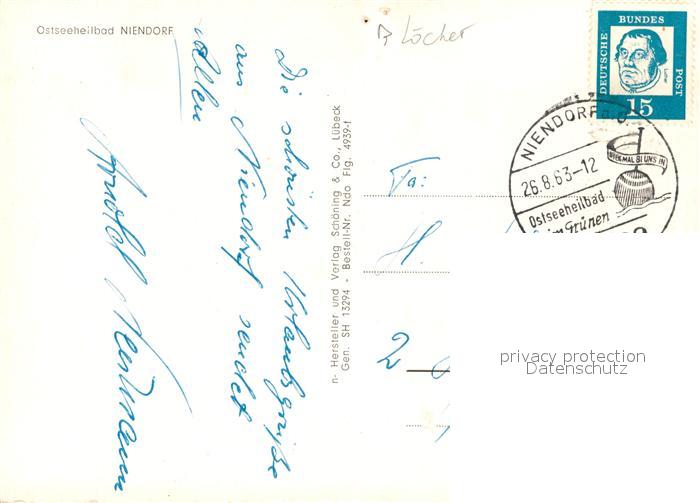 Ostseeheilbad NIENDORF
2 Löcher
DEUTSCHE
BUNDES
POST
Luther
15
NIENDORF a. O.
26.8.63-12
Ostseeheilbad
im Grünen
Die schönsten Urlaubsgrüße
aus Niendorf sendet
allen
Arnold Neumann
n- Hersteller und Verlag Schöning & Co., Lübeck
Gen. SH 13294 - Bestell-Nr. Ndo Flg. 4939-1
Fa:
H.
2
privacy protection
Datenschutz